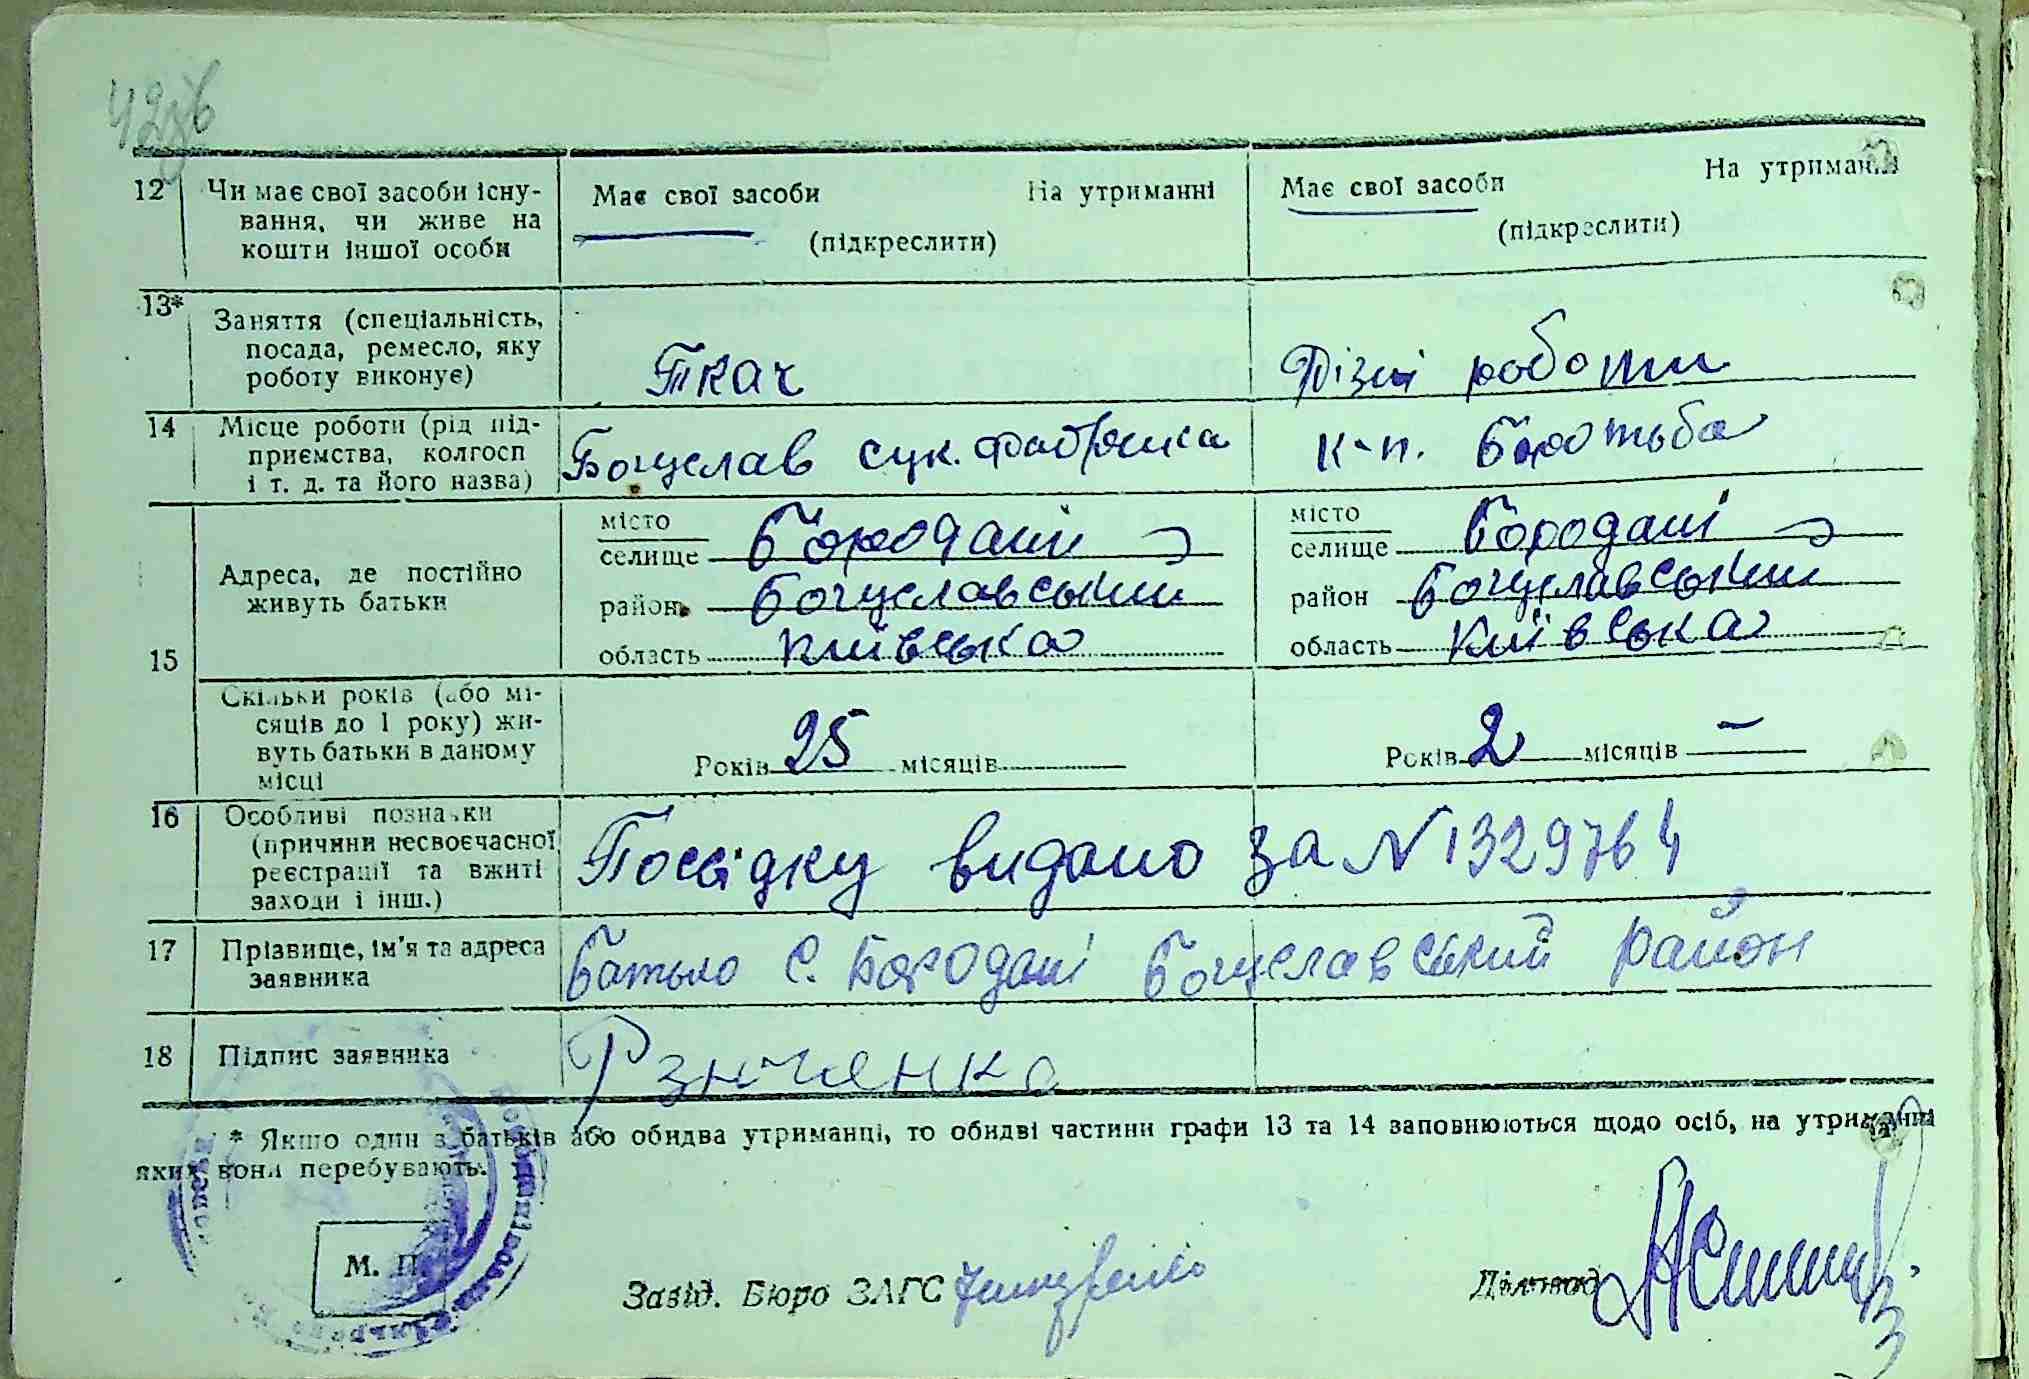 42зв
12 Чи має свої засоби існу-
вання, чи живе на
кошти іншої особи
Має свої засоби На утриманні
(підкреслити)
Має свої засоби На утриманні
(підкреслити)
13* Заняття (спеціальність,
посада, ремесло, яку
роботу виконує)
Ткач
Різні роботи
14 Місце роботи (рід під-
приємства, колгосп
і т. д. та його назва)
Богуслав сук. фабрика
к-п. Боротьба
15
Адреса, де постійно
живуть батьки
місто
селище Бородані
район Богуславський
область Київська
місто
селище Бородані
район Богуславський
область Київська
Скільки років (або мі-
сяців до 1 року) жи-
вуть батьки в даному
місці
Років 25 місяців
Років 2 місяців —
16 Особливі познаки
(причини несвоєчасної
реєстрації та вжиті
заходи і інш.)
Посвідку видано за N 1329764
17 Прізвище, ім'я та адреса
заявника
Батько с. Бородані Богуславський район
18 Підпис заявника
* Якшо один з батьків або обидва утриманці, то обидві частини графи 13 та 14 заповнюються щодо осіб, на утриманні
яких вони перебувають.
М. П.
Завід. Бюро ЗАГС
Діловод